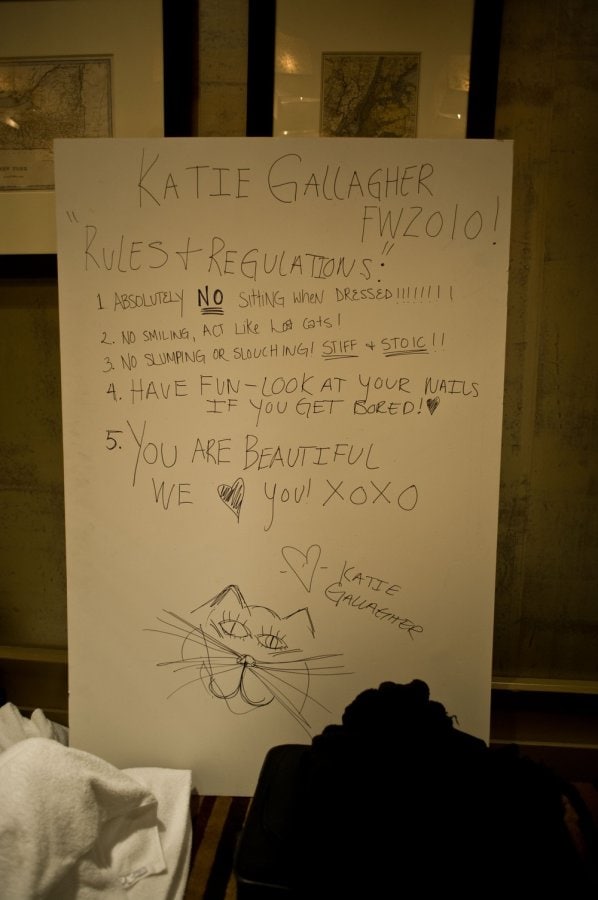 KATIE GALLAGHER
FW2010!
"RULES + REGULATIONS:"
1 ABSOLUTELY NO SITTING when DRESSED!!!!!!!!
2. NO SMILING, ACT Like hot cats!
3. NO SLUMPING OR SLOUCHING! STIFF + STOIC!!
4. HAVE FUN - LOOK AT YOUR NAILS
IF YOU GET BORED! ♥
5. YOU ARE BEAUTIFUL
WE ♥ you! XOXO
-♡- KATIE
GALLAGHER